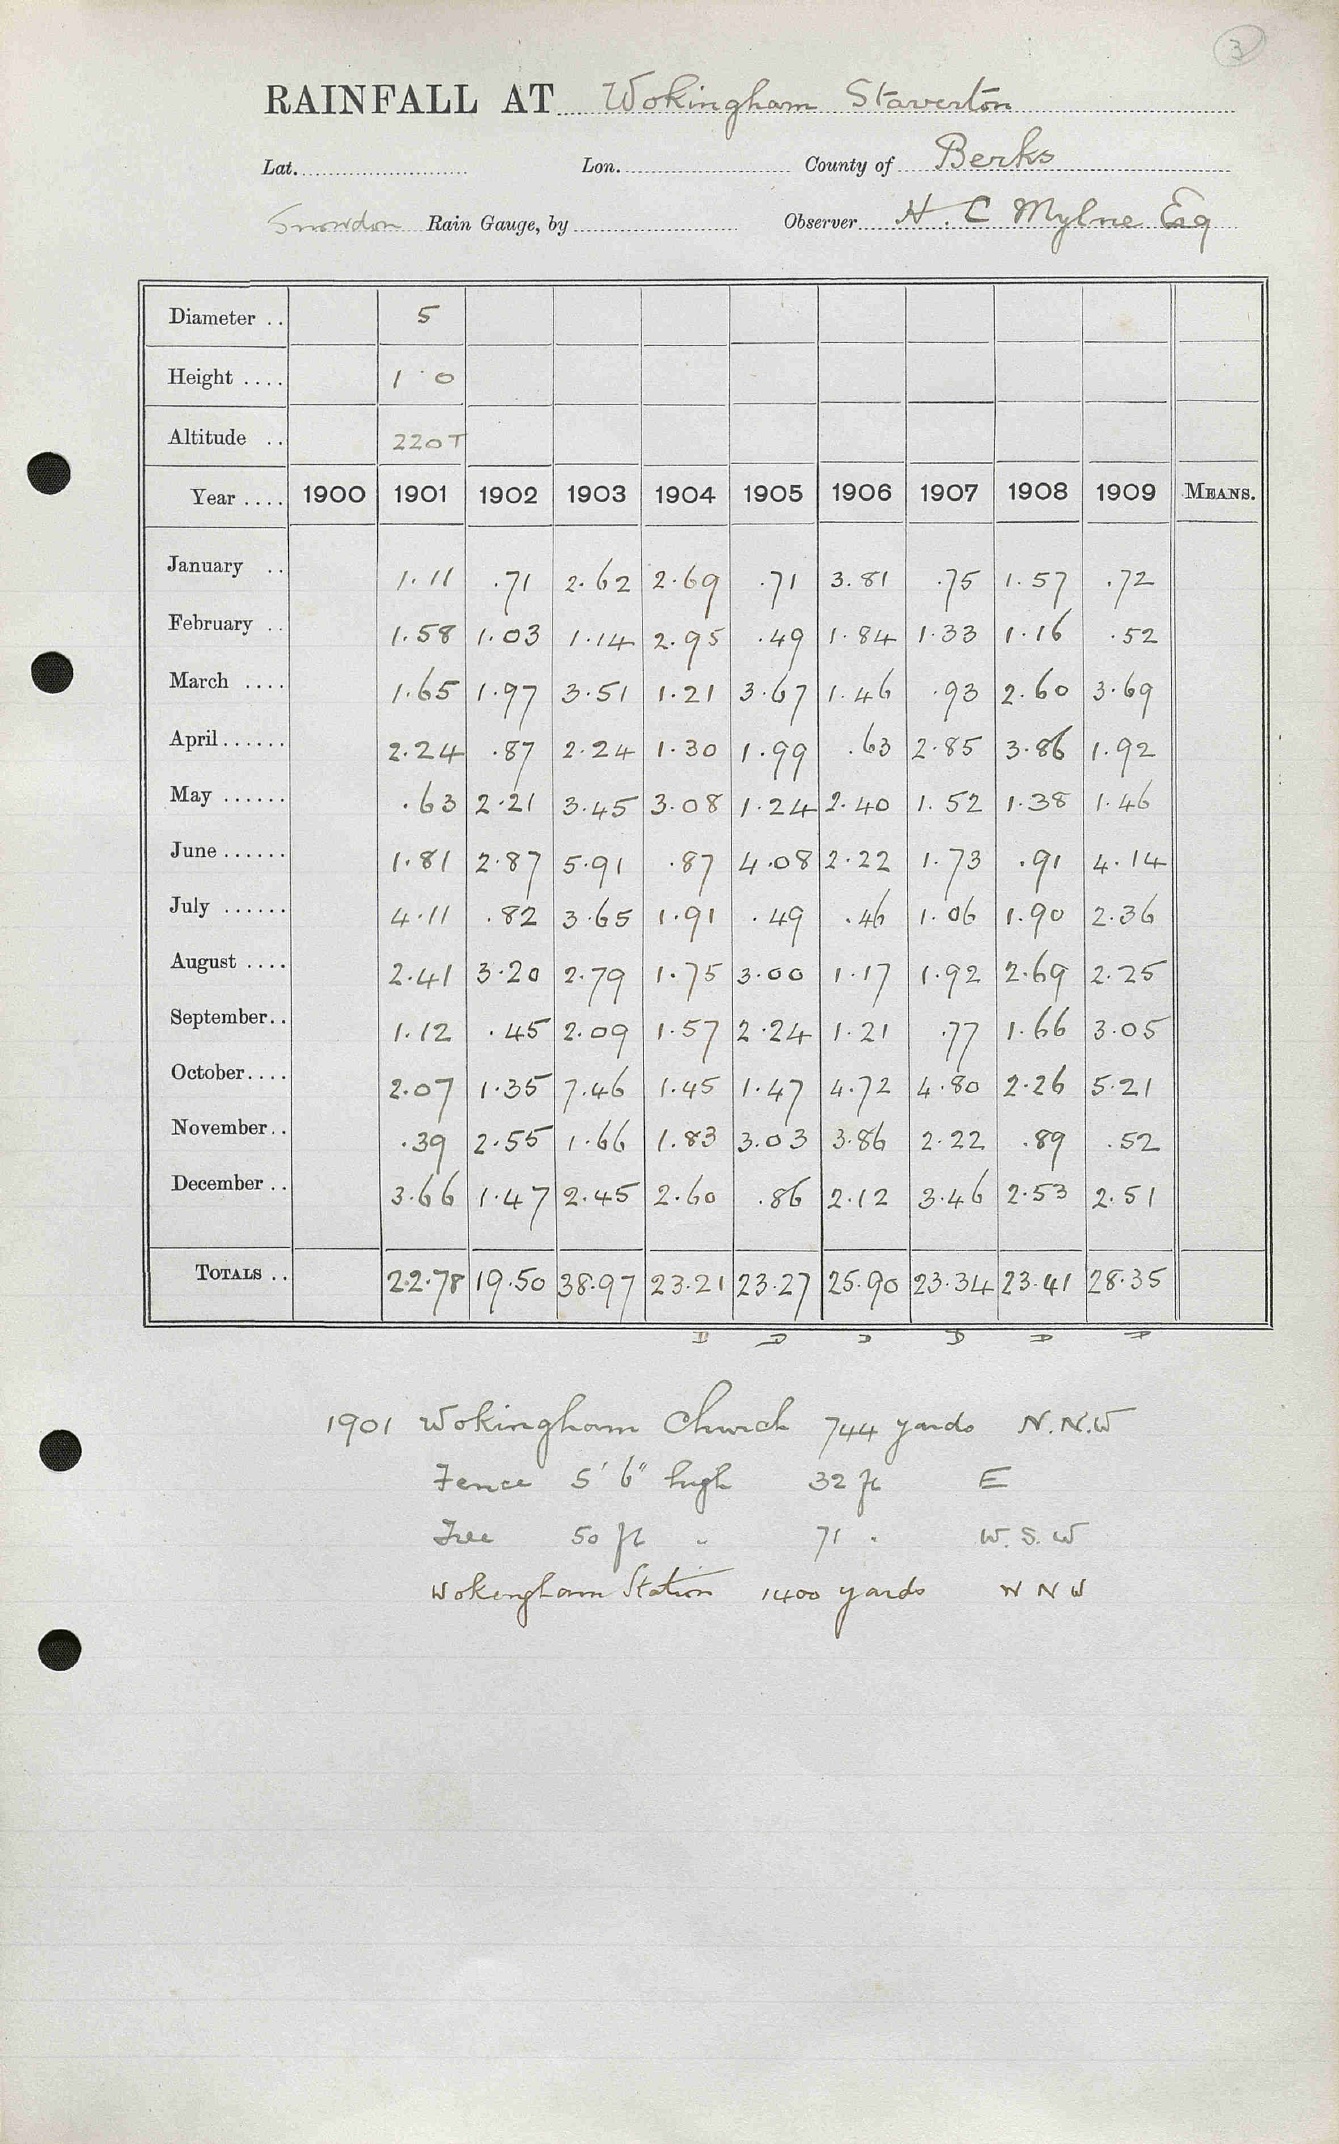 3
RAINFALL AT Wokingham Staverton
Lat. Lon. County of Berks
Snowdon Rain Gauge, by Observer H. C Mylne Esq
Diameter .. 5
Height .... 1 0
Altitude .. 220T
Year .... 1900 1901 1902 1903 1904 1905 1906 1907 1908 1909 MEANS.
January .. 1.11 .71 2.62 2.69 .71 3.81 .75 1.57 .72
February .. 1.58 1.03 1.14 2.95 .49 1.84 1.33 1.16 .52
March .... 1.65 1.97 3.51 1.21 3.67 1.46 .93 2.60 3.69
April...... 2.24 .87 2.24 1.30 1.99 .63 2.85 3.86 1.92
May ...... .63 2.21 3.45 3.08 1.24 2.40 1.52 1.38 1.46
June...... 1.81 2.87 5.91 .87 4.08 2.22 1.73 .91 4.14
July ...... 4.11 .82 3.65 1.91 .49 .46 1.06 1.90 2.36
August .... 2.41 3.20 2.79 1.75 3.00 1.17 1.92 2.69 2.25
September.. 1.12 .45 2.09 1.57 2.24 1.21 .77 1.66 3.05
October.... 2.07 1.35 7.46 1.45 1.47 4.72 4.80 2.26 5.21
November.. .39 2.55 1.66 1.83 3.03 3.86 2.22 .89 .52
December .. 3.66 1.47 2.45 2.60 .86 2.12 3.46 2.53 2.51
TOTALS .. 22.78 19.50 38.97 23.21 23.27 25.90 23.34 23.41 28.35
D D D D D D
1901 Wokingham Church 744 yards N.N.W
Fence 5' 6" high 32 ft E
Tree 50 ft " 71 " W.S.W
Wokingham Station 1400 yards N N W